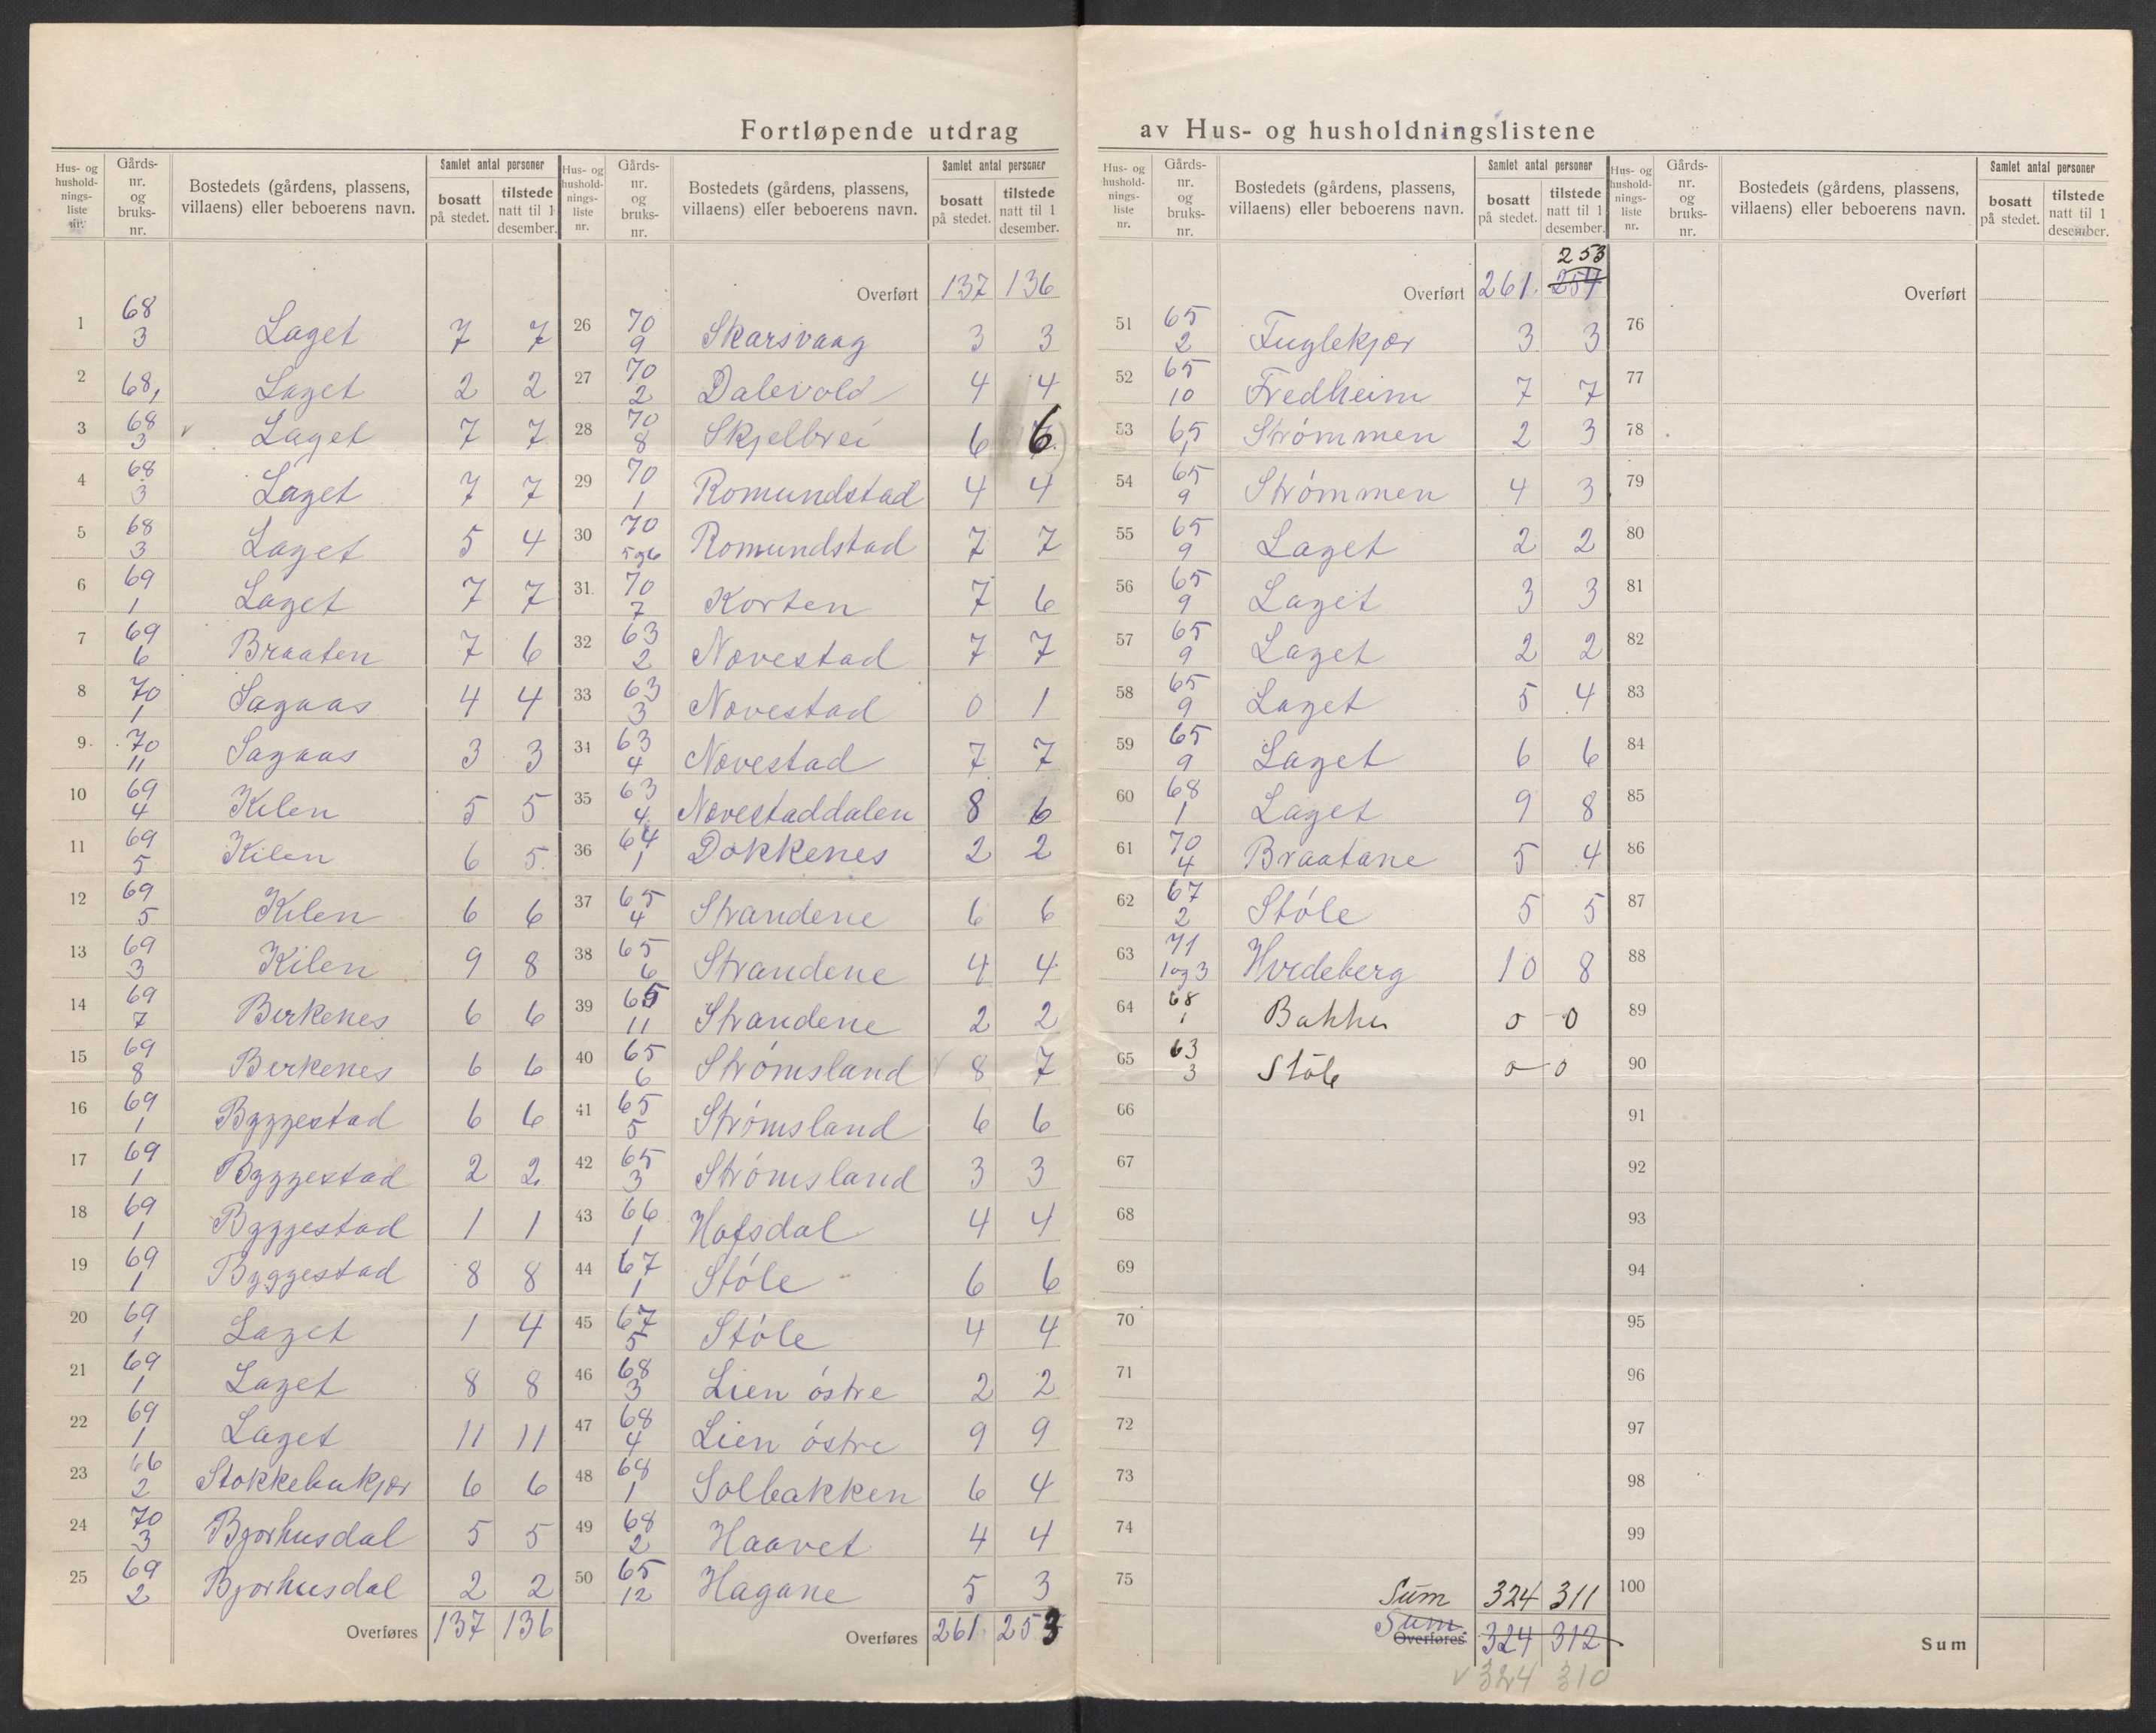 Fortløpende utdrag av Hus- og husholdningslistene
Hus- og husholdnings-liste nr. | Gårds-nr. og bruks-nr. | Bostedets (gårdens, plassens, villaens) eller beboerens navn. | Samlet antal personer bosatt på stedet. | tilstede natt til 1 desember.
1 68/3 Laget 7 7
2 68,1 Laget 2 2
3 68/3 v Laget 7 7
4 68/3 Laget 7 7
5 68/3 Laget 5 4
6 69/1 Laget 7 7
7 69/6 Braaten 7 6
8 70/1 Sagaas 4 4
9 70/11 Sagaas 3 3
10 69/4 Kilen 5 5
11 69/5 Kilen 6 5
12 69/5 Kilen 6 6
13 69/3 Kilen 9 8
14 69/7 Birkenes 6 6
15 69/8 Birkenes 6 6
16 69/1 Byggestad 6 6
17 69/1 Byggestad 2 2
18 69/1 Byggestad 1 1
19 69/1 Byggestad 8 8
20 69/1 Laget 1 4
21 69/1 Laget 8 8
22 69/1 Laget 11 11
23 66/2 Stokkebukjær 6 6
24 70/3 Bjorhusdal 5 5
25 69/2 Bjorhusdal 2 2
Overføres 137 136
Hus- og husholdnings-liste nr. | Gårds-nr. og bruks-nr. | Bostedets (gårdens, plassens, villaens) eller beboerens navn. | Samlet antal personer bosatt på stedet. | tilstede natt til 1 desember.
Overført 137 136
26 70/9 Skarsvaag 3 3
27 70/2 Dalevold 4 4
28 70/8 Skjelbrei 6 6
29 70/1 Romundstad 4 4
30 70/5og6 Romundstad 7 7
31. 70/7 Korten 7 6
32 63/2 Nævestad 7 7
33 63/3 Nævestad 0 1
34 63/4 Nævestad 7 7
35 63/4 Nævestaddalen 8 6
36 64/1 Dokkenes 2 2
37 65/4 Strandene 6 6
38 65/6 Strandene 4 4
39 65/11 Strandene 2 2
40 65/6 Strømsland v 8 7
41 65/5 Strømsland 6 6
42 65/3 Strømsland 3 3
43 66/1 Hofsdal 4 4
44 67/1 Støle 6 6
45 67/5 Støle 4 4
46 68/3 Lien østre 2 2
47 68/4 Lien østre 9 9
48 68/1 Solbakken 6 4
49 68/2 Haavet 4 4
50 65/12 Hagane 5 3
Overføres 261 253
Hus- og husholdnings-liste nr. | Gårds-nr. og bruks-nr. | Bostedets (gårdens, plassens, villaens) eller beboerens navn. | Samlet antal personer bosatt på stedet. | tilstede natt til 1 desember.
253
Overført 261. 254
51 65/2 Fuglekjær 3 3
52 65/10 Fredheim 7 7
53 65/1 Strømmen 2 3
54 65/9 Strømmen 4 3
55 65/9 Laget 2 2
56 65/9 Laget 3 3
57 65/9 Laget 2 2
58 65/9 Laget 5 4
59 65/9 Laget 6 6
60 68/1 Laget 9 8
61 70/4 Braatane 5 4
62 67/2 Støle 5 5
63 71/1og3 Hvideberg 10 8
64 68/1 Bakken 0 0
65 63/3 Støle 0 0
66
67
68
69
70
71
72
73
74
75
Sum 324 311
Sum. Overføres 324 312
v 324 310
Hus- og hushold-nings-liste nr. | Gårds-nr. og bruks-nr. | Bostedets (gårdens, plassens, villaens) eller beboerens navn. | Samlet antal personer bosatt på stedet. | tilstede natt til 1 desember.
Overført
76
77
78
79
80
81
82
83
84
85
86
87
88
89
90
91
92
93
94
95
96
97
98
99
100
Sum